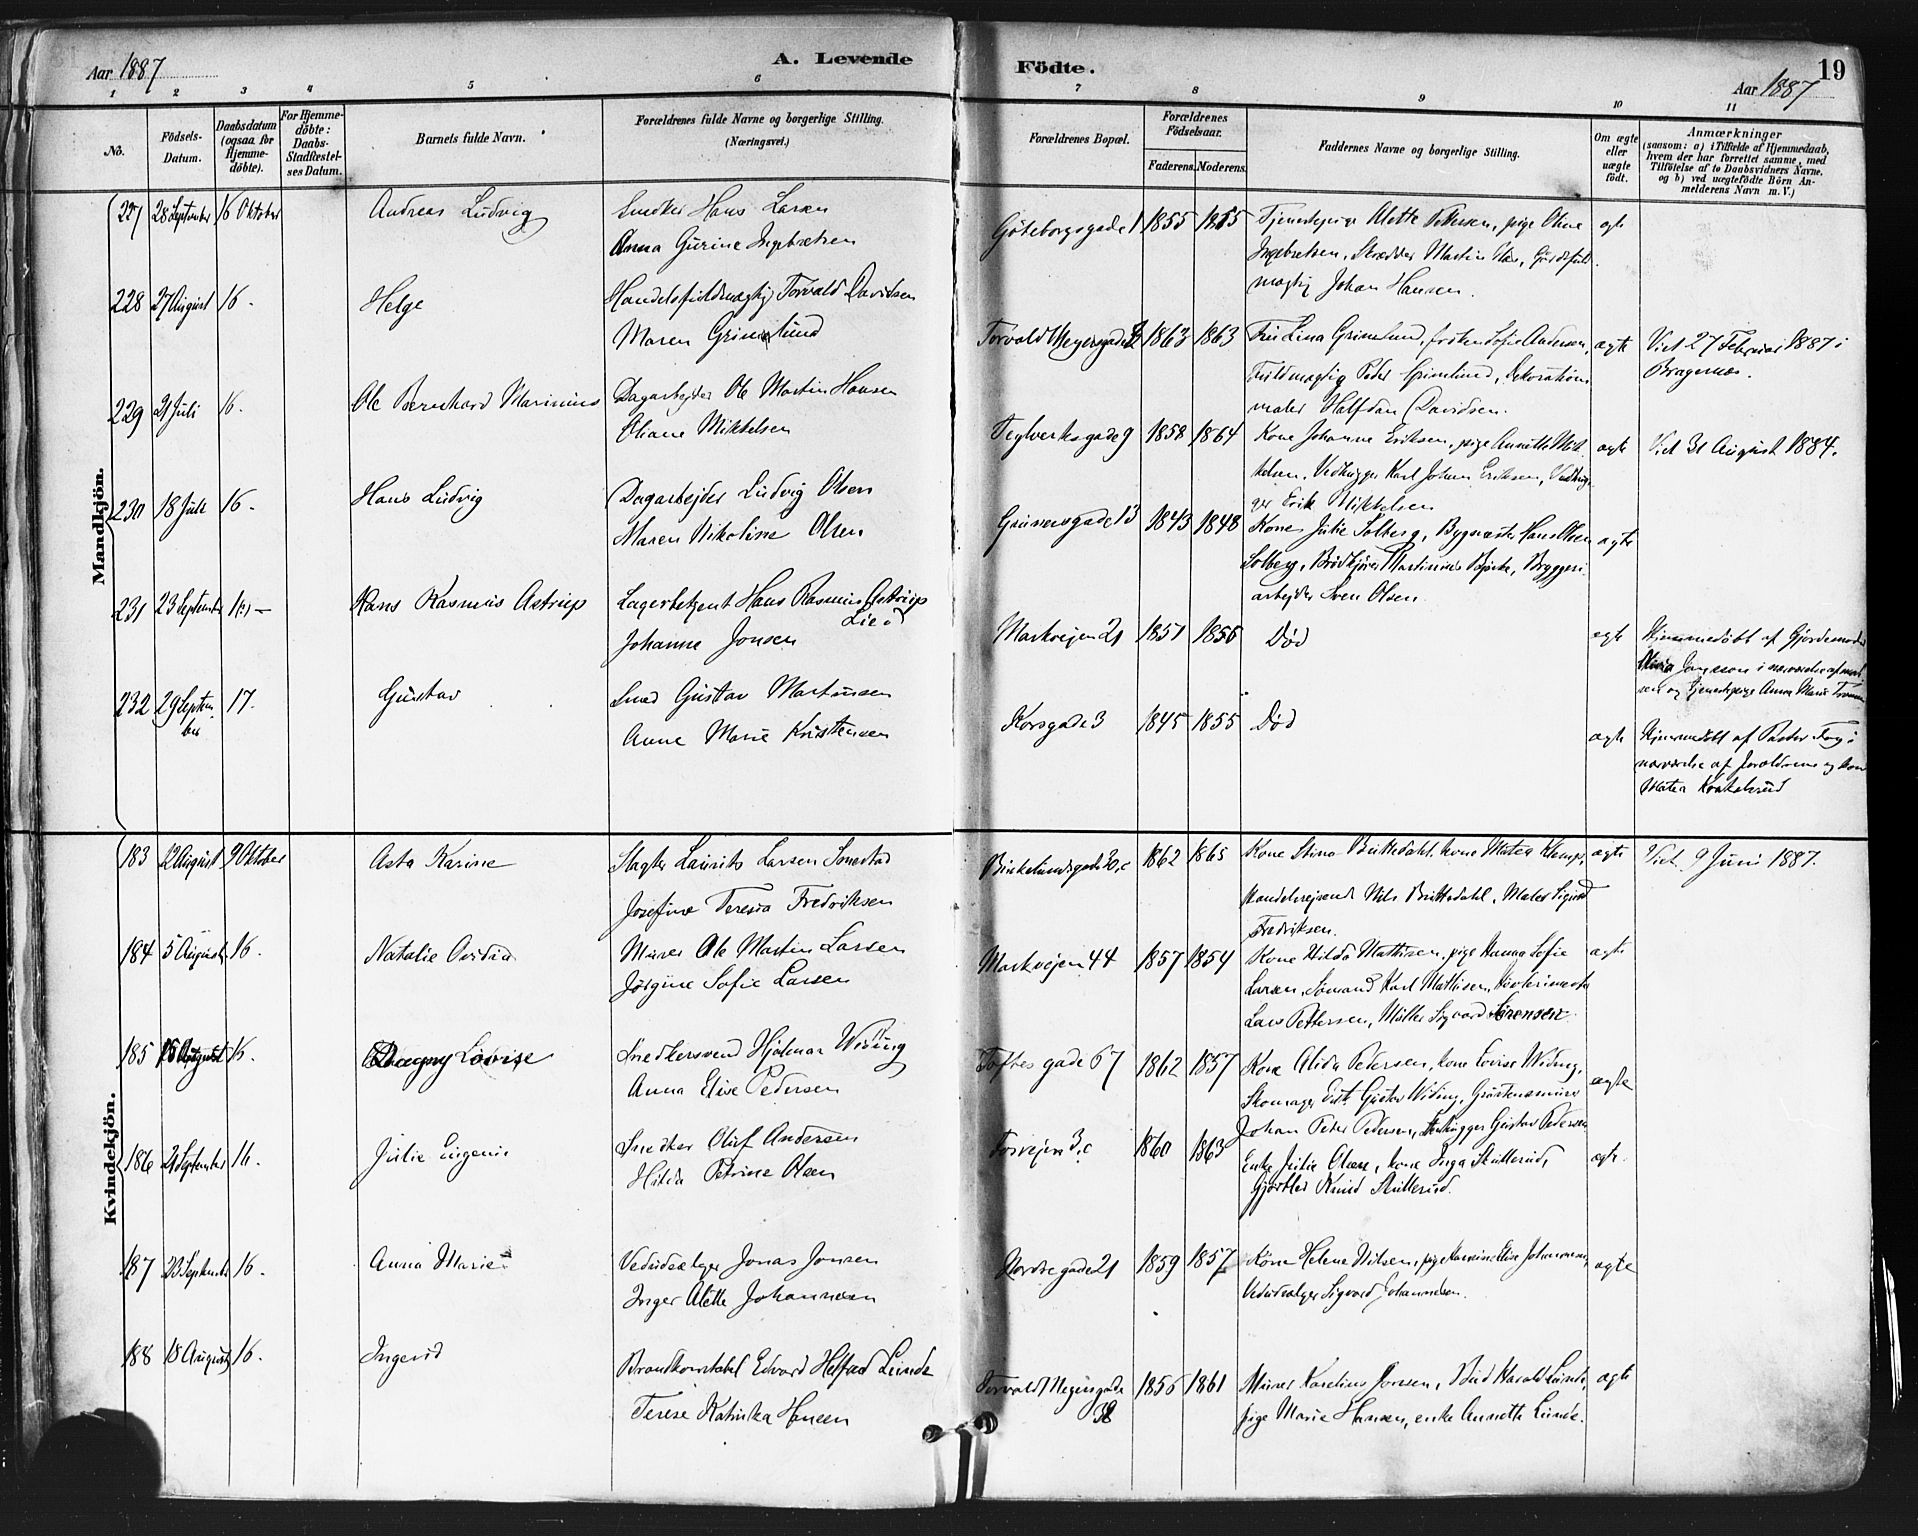 Aar 1887
A. Levende
Födte.
19
Aar 1887
1 2 3 4 5 6 7 8 9 10 11
No.
Födsels-
Datum.
Daabsdatum
(ogsaa for
Hjemme-
döbte).
For Hjemme-
döbte:
Daabs-
Stadfæstel-
ses Datum.
Barnets fulde Navn.
Forældrenes fulde Navne og borgerlige Stilling.
(Næringsvei.)
Forældrenes Bopæl.
Forældrenes
Födselsaar.
Faderens. Moderens.
Faddernes Navne og borgerlige Stilling.
Om ægte
eller
uægte
födt.
Anmærkninger
(saasom: a) i Tilfælde af Hjemmedaab,
hvem der har forrettet samme, med
Tilföielse af to Daabsvidners Navne,
og b) ved uægtefödte Börn An-
melderens Navn m. V.)
Mandkjön.
227 28 September 16 Oktober Andreas Ludvig Snedker Hans Larsen
Anna Gurine Ingebretsen
Göteborgsgade 1 1855 1855 Tjenestepige Alette Pettersen, pige Oline
Ingebretsen, Skrædder Martin
mægtig Johan Hansen.
228 27 August 16. Helge Handelsfuldmægtig Torvald Davidsen
Maren Grimelund
Torvald Meyersgade 1863 1863 Fru Lina Grimelund, frøken Sofie Andersen, ægte Viet 27 Februar 1887 i
Fuldmægtig Peder Grimelund, Dekorations Bragernæs.
maler Halfdan Davidsen.
229 21 Juli 16. Ole Bernhard Marinius Dagarbejder Ole Martin Hansen
Oliane Mikkelsen
Teglverksgade 9 1858 1864 Kone Johanne Eriksen, pige Annette Mik- ægte Viet 31 August 1884.
kelsen, Vedhugger Karl Johan Eriksen, Vedhug-
ger Erik Mikkelsen
230 18 Juli 16. Hans Ludvig Dagarbejder Ludvig Olsen
Maren Nikoline Olsen
Grünersgade 13 1843 1848 Kone Julie Solberg, Bygmester Hans Olsen ægte
Solberg, Brødkjører Martinius Bjerke, Bryggeri
arbejder Sven Olsen.
231 23 September 16 — Hans Rasmus Astrup Lagerbetjent Hans Rasmus Astrup
Lie
Johanne Jonsen
Markvejen 21 1851 1856 Død ægte Hjemmedöbt af Gjordemoder
i nærværelse af
sen og Tjenestepige Anna Marie
232 29 Septem- 17. Gustav Smed Gustav Martinsen
ber
Anne Marie Kristensen
Korsgade 3 1845 1855 Død ægte Hjemmedöbt af Pastor i
nærværelse af forældrene og kone
Matea
Kvindekjön.
183 22 August 9 Oktober Asta Karine Slagter Laurits Larsen
Josefine Teresia Fredriksen
Birkelundsgade 30,c 1862 1865 Kone Stina kone Matea ægte Viet 9 Juni 1887.
Handelsrejsende Nils Maler Sigurd
Fredriksen.
184 5 August 16. Natalie Ovidia Murer Ole Martin Larsen
Jørgine Sofie Larsen
Markvejen 44 1857 1854 Kone Hilda Mathisen, pige Hanna Sofie ægte
Larsen, Sømand Karl Mathisen,
Lars Pettersen, Møller Sigvard Sørensen.
185 August 16. Dagny Lovise Snedkersvend Hjalmar Widing
Anna Elise Pedersen
Toftes gade 67 1862 1857 Kone Alida Pedersen, kone Lovise Widing, ægte
Skomager Gustav Widing,
Johan Peter Pedersen, Gustav Pedersen
186 21 September 16. Julie Eugenie Snedker Oluf Andersen
Hilda Petrine Olsen
Torvejen 3,c 1860 1863 Enke Julie Olsen, kone Inga Skullerud, ægte
Gjørtler Knud Skullerud.
187 23 September 16. Anna Marie Vedudsælger Jonas Jonsen
Inger Alette Johannesen
Nordregade 21 1859 1857 Kone Helene Nilsen, pige Elise Johannesen, ægte
Vedudsælger Sigvard Johannesen.
188 18 August 16. Ingerid Brandkonstabel Edvard Lunde
Terese Katinka Hansen
Torvald Meyersgade 1856 1861 Murer Karelius Jonsen, Bud Harald Lunde, ægte
38 pige Marie Hansen, enke Annette Lunde.